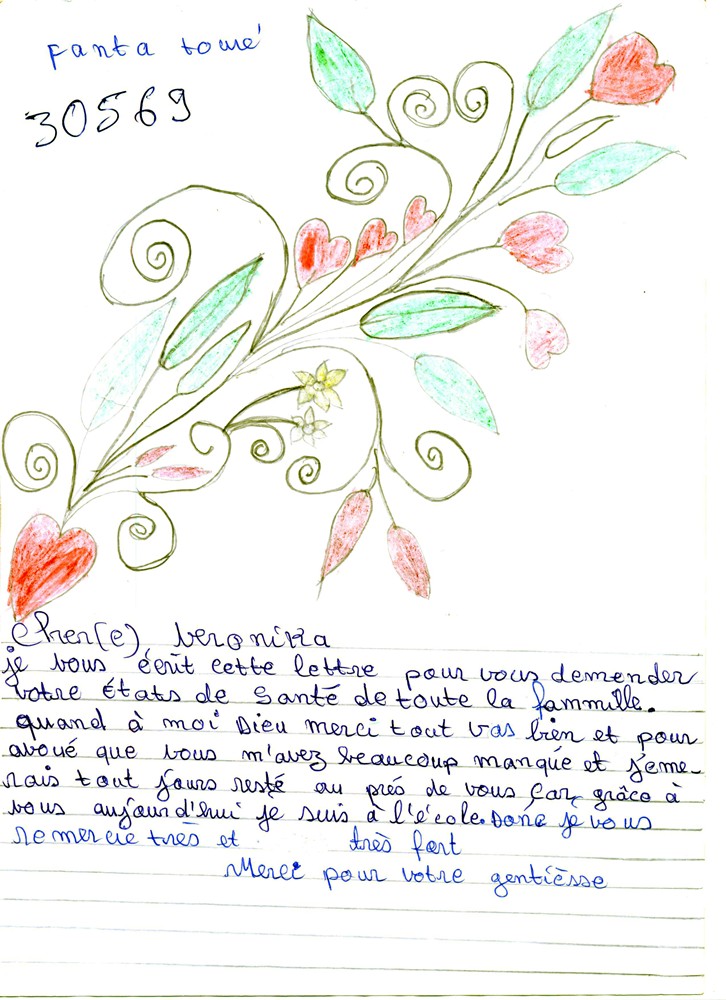 Fanta tomé
30569
Cher(e), Veronika
je vous écrit cette lettre pour vous demender
votre États de Santé de toute la fammille.
quand à moi Dieu merci tout vas bien et pour
avoué que vous m'avez beaucoup manqué et j'eme-
rais tout jours resté au prés de vous Car, grâce à
vous aujourd'hui je suis à l'école. Donc je vous
remercie très et très fort
Merci pour votre gentièsse